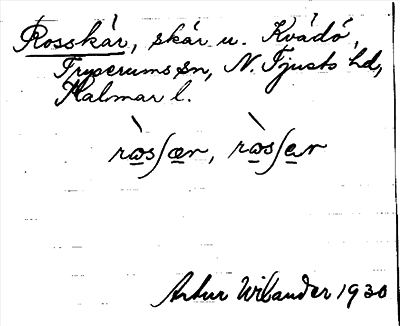 Rosskär, skär u. Kvädö,
Tryserums sn, N. Tjusts hd,
Kalmar l.
rὼsʃær, rὼsʃer
Artur Wilander 1930